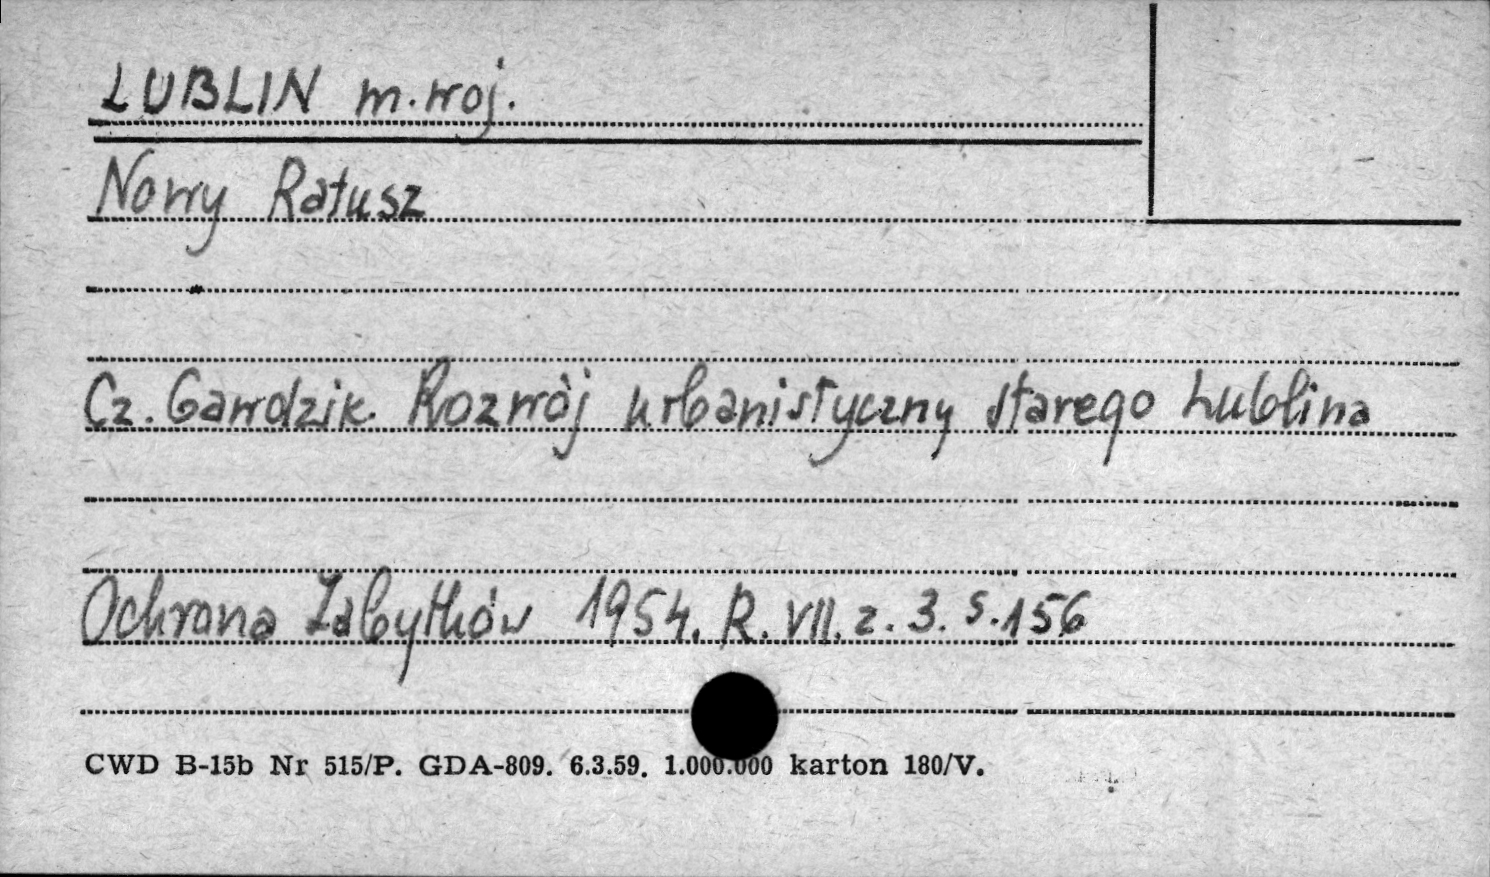 LUBLIN m. woj.
Nowy Ratusz
Cz. Gawdzik. Rozwój urbanistyczny starego Lublina
Ochrona Zabytków 1954. R. VII. z. 3. s. 156
CWD B-15b Nr 515/P. GDA-809. 6.3.59. 1.000.000 karton 180/V.